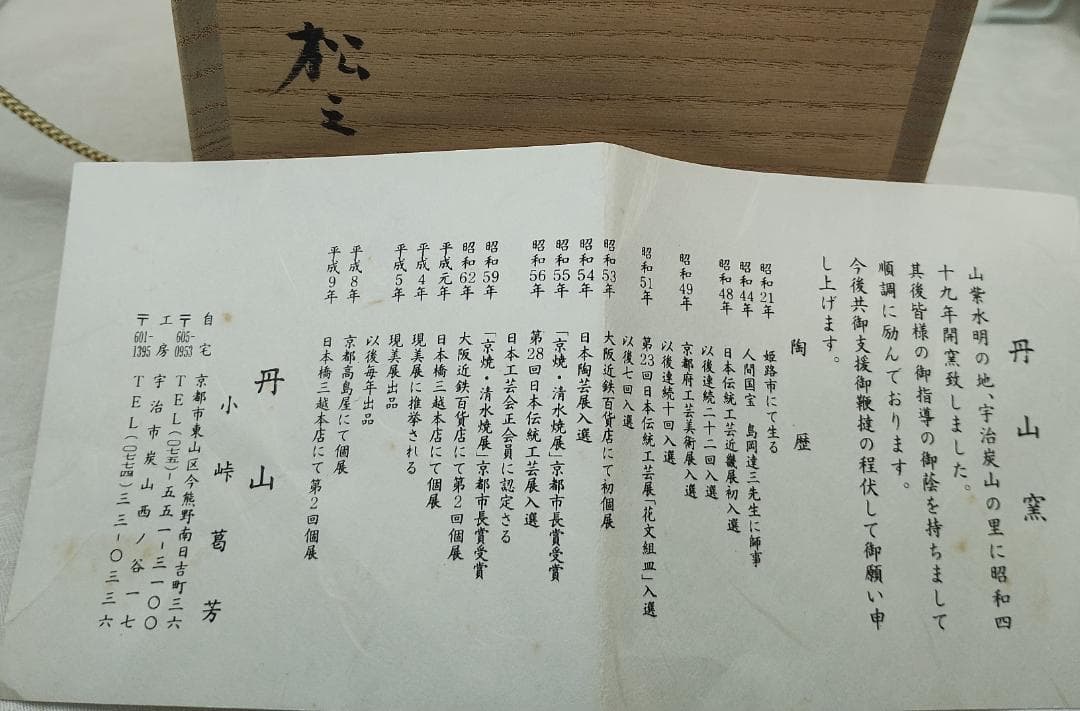 松
丹山窯
山紫水明の地、宇治炭山の里に昭和四
十九年開窯致しました。
其後皆様の御指導の御蔭を持ちまして
順調に励んでおります。
今後共御支援御鞭撻の程伏して御願い申
し上げます。
陶歴
昭和21年 姫路市にて生る
昭和44年 人間国宝 島岡達三先生に師事
昭和48年 日本伝統工芸近畿展初入選
以後連続二十二回入選
昭和49年 京都府工芸美術展入選
以後連続十回入選
昭和51年 第23回日本伝統工芸展「花文組皿」入選
以後七回入選
昭和53年 大阪近鉄百貨店にて初個展
昭和54年 日本陶芸展入選
昭和55年 「京焼・清水焼展」京都市長賞受賞
昭和56年 第28回日本伝統工芸展入選
日本工芸会正会員に認定さる
昭和59年 「京焼・清水焼展」京都市長賞受賞
昭和62年 大阪近鉄百貨店にて第2回個展
平成元年 日本橋三越本店にて個展
平成4年 現美展に推挙される
平成5年 現美展出品
以後毎年出品
平成8年 京都高島屋にて個展
平成9年 日本橋三越本店にて第2回個展
丹山
小峠葛芳
自宅 京都市東山区今熊野南日吉町三六
〒605-0953 TEL(〇七五)-五五一-三一〇〇
工房 宇治市炭山西ノ谷一七
〒601-1395 TEL(〇七七四)三三-〇三三六